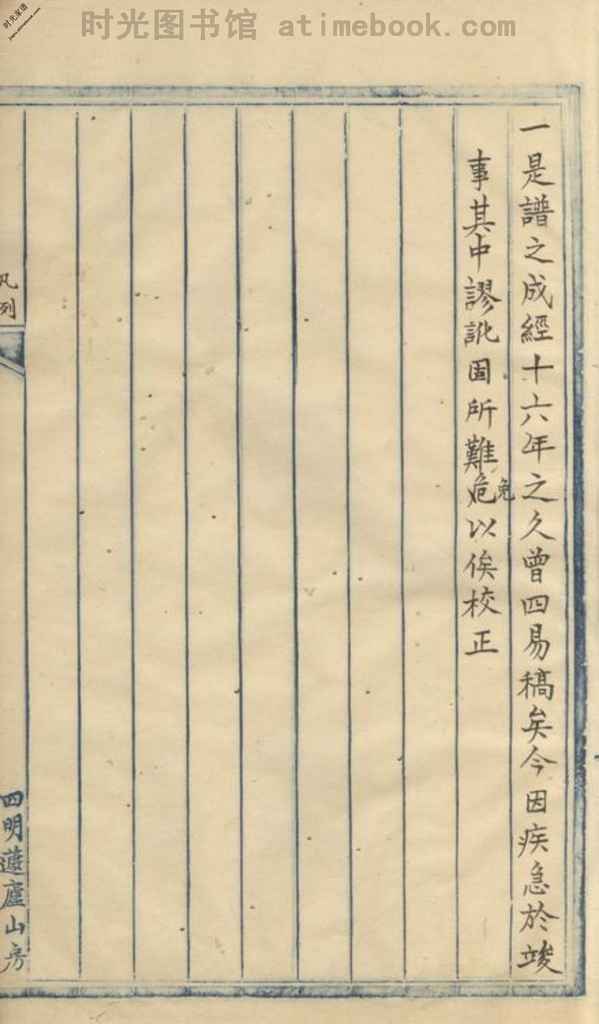 时光图书馆 atimebook.com
时光家谱
一是譜之成經十六年之久曾四易稿矣今因疾急於竣
事其中謬訛固所難危以俟校正
免
凡列
四明蘧廬山房